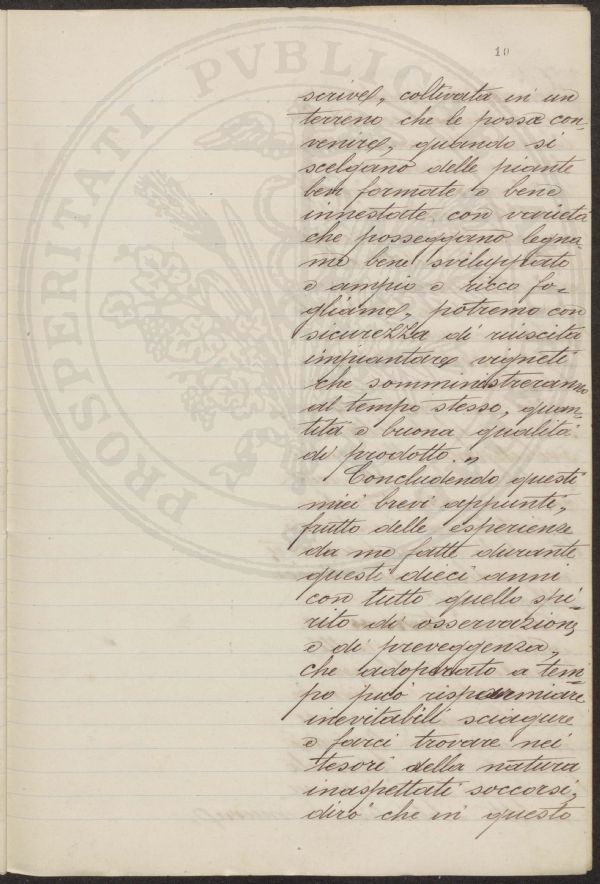 10
PROSPERITATI PVBLIC
scrive, coltivata in un
terreno che le possa con-
venire, quando si
scelgano delle piante
ben formate e bene
innestate con varietà
che posseggano legna-
me bene sviluppato
e ampio e ricco fo-
gliame, potremo con
sicurezza di riuscita
impiantare vigneti
che somministreranno
al tempo stesso, quan-
tità e buona qualità
di prodotto."
Concludendo questi
miei brevi appunti,
frutto delle esperienze
da me fatte durante
questi dieci anni
con tutto quello spi-
rito di osservazione
e di preveggenza,
che adoperato a tem-
po può risparmiare
inevitabili sciagure
e farci trovare nei
tesori della natura
inaspettati soccorsi,
dirò che in questo